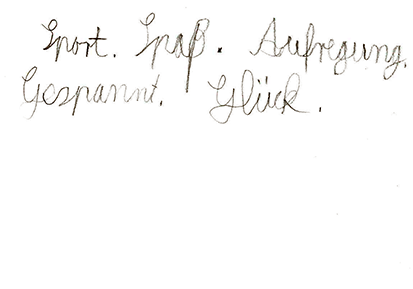 Sport. Spaß. Aufregung.
Gespannt. Glück.